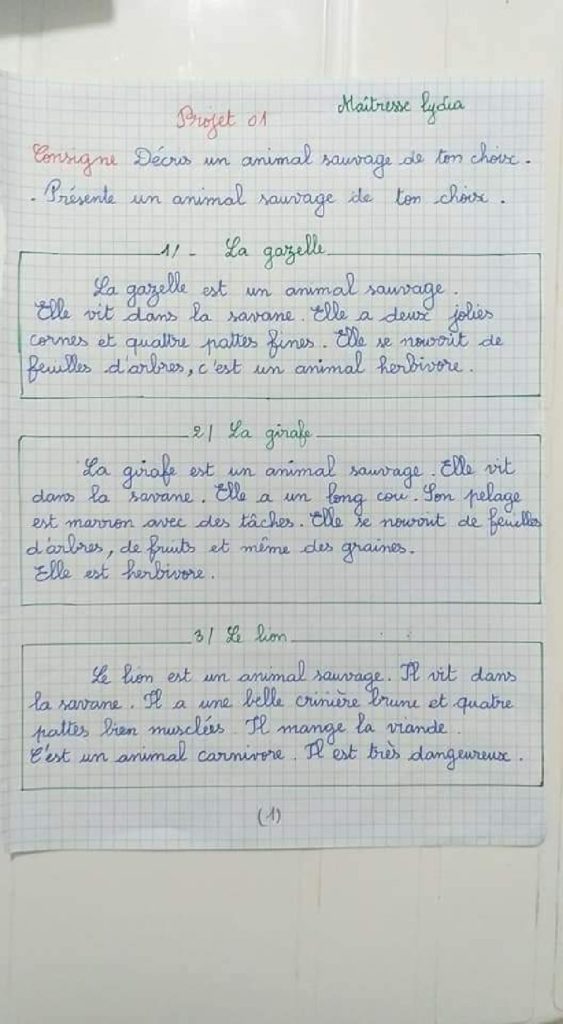 Maîtresse lydia
Projet 01
Consigne Décris un animal sauvage de ton choix.
. Présente un animal sauvage de ton choix.
1/- La gazelle
La gazelle est un animal sauvage.
Elle vit dans la savane. Elle a deux jolies
cornes et quattre pattes fines. Elle se nourrit de
feuilles d'arbres, c'est un animal herbivore.
2/ La girafe
La girafe est un animal sauvage. Elle vit
dans la savane. Elle a un long cou. Son pelage
est marron avec des tâches. Elle se nourrit de feuilles
d'arbres, de fruits et même des graines.
Elle est herbivore.
3/ Le lion
Le lion est un animal sauvage. Il vit dans
la savane. Il a une belle crinière brune et quatre
pattes bien musclées. Il mange la viande.
C'est un animal carnivore. Il est très dangeureux.
(1)